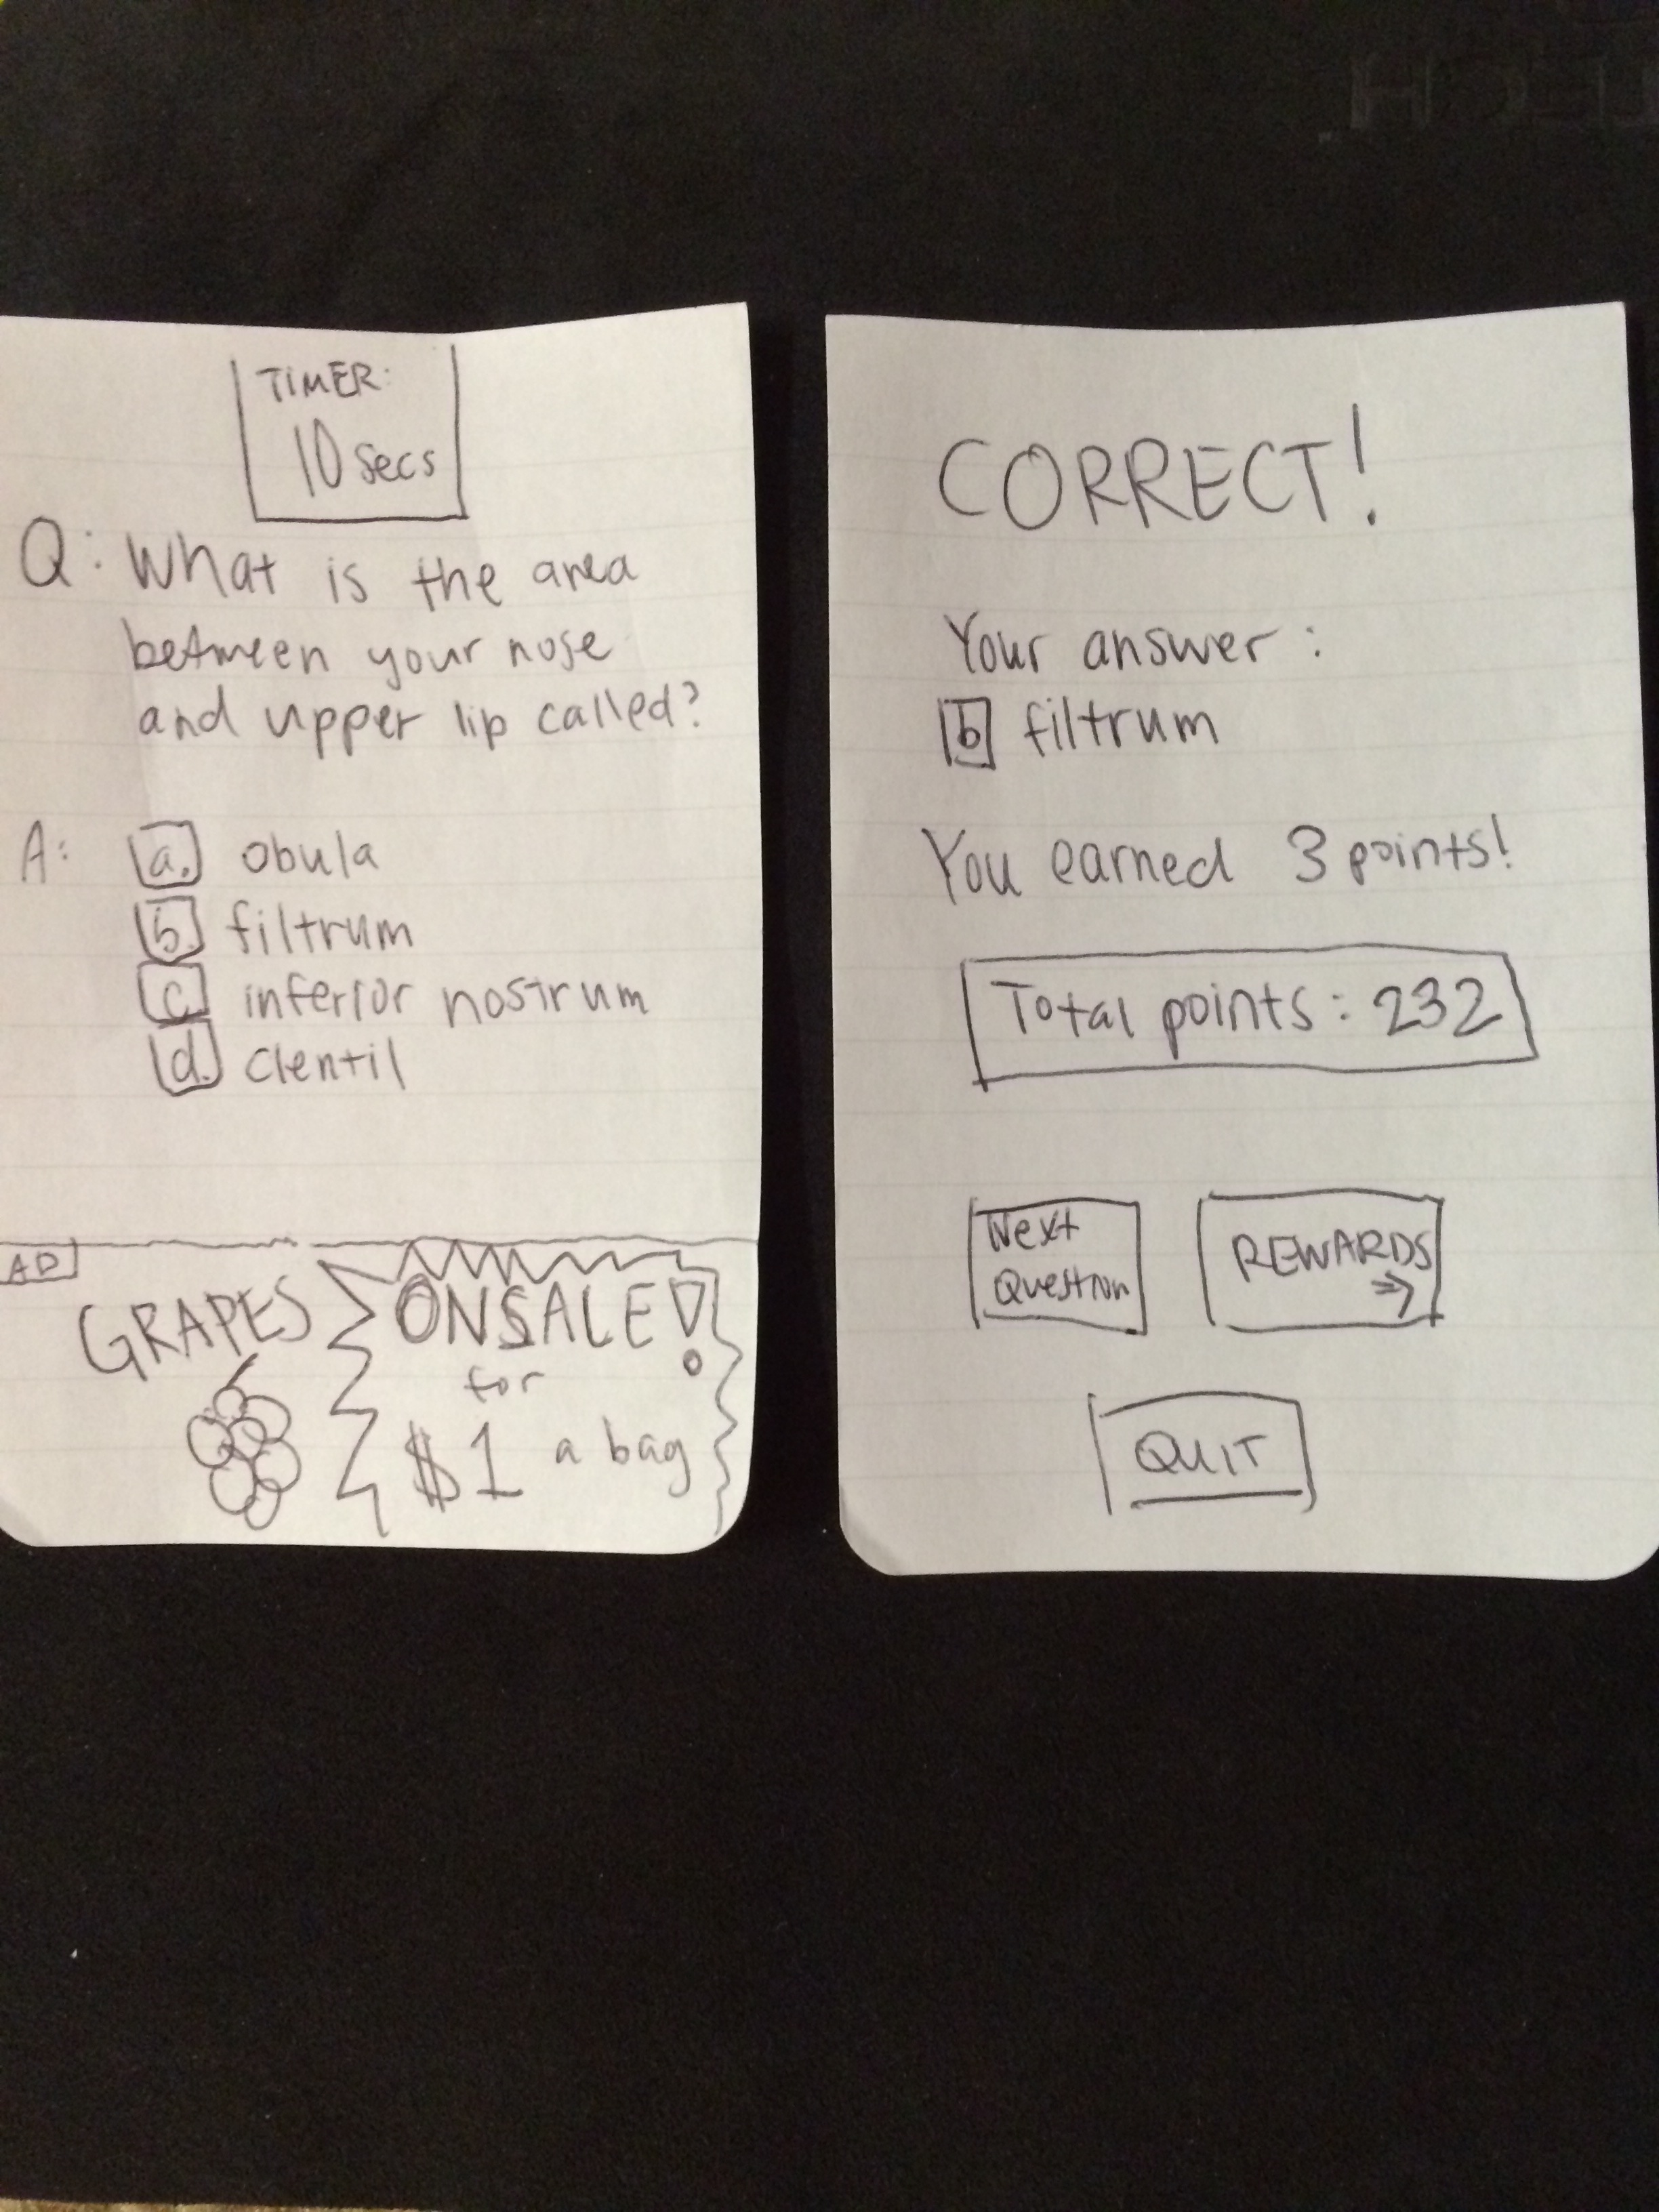 TIMER:
10 secs
Q: What is the area
between your nose
and upper lip called?
A: a. obula
b. filtrum
c. inferior nostrum
d. clentil
AD
GRAPES
ON SALE!
for
$1 a bag
CORRECT!
Your answer:
b filtrum
You earned 3 points!
Total points: 232
Next
Question
REWARDS
→
QUIT